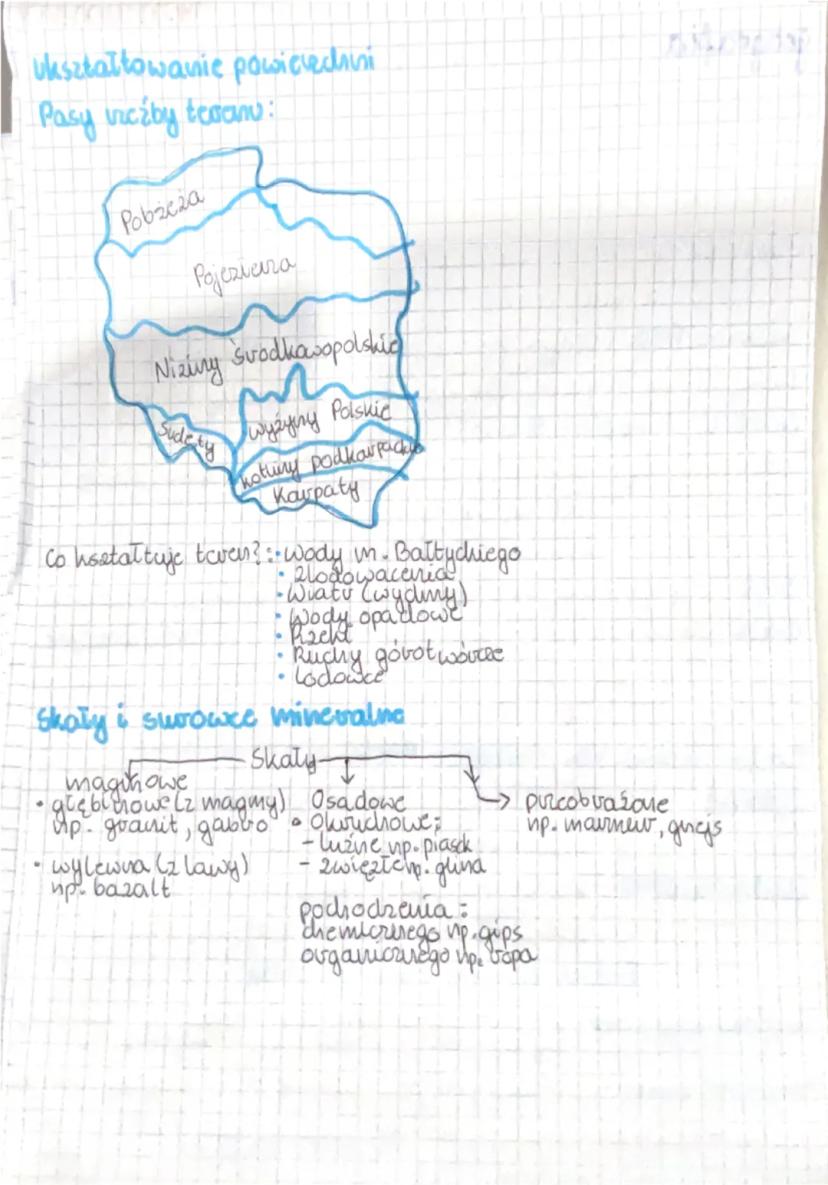 Ukształtowanie powierzchni
Pasy rzeźby terenu:
Pobrzeża
Pojezierza
Niziny środkowopolskie
Sudety
Wyżyny Polskie
Kotliny podkarpackie
Karpaty
Co kształtuje teren?: • wody m. Bałtyckiego
• Zlodowacenia
• Wiatr (wydmy)
• Wody opadowe
• Rzeki
• Ruchy górotwórcze
• Lodowce
Skały i surowce mineralne
Skały
magmowe
• głębinowe (z magmy)
np. granit, gabro
• wylewna (z lawy)
np. bazalt
Osadowe
• Okruchowe:
- luźne np. piasek
- zwięzłe np. glina
pochodzenia:
chemicznego np. gips
organicznego np. ropa
przeobrażone
np. marmur, gnejs